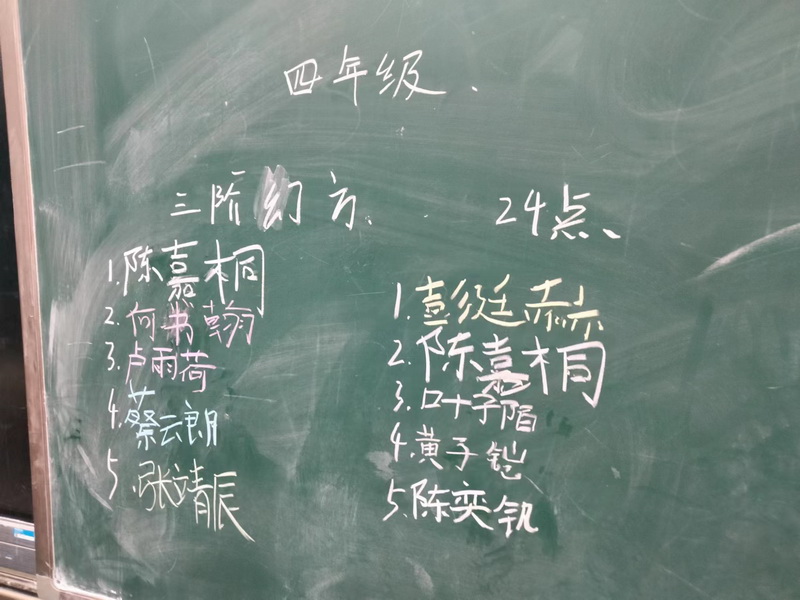 四年级.
三阶幻方.
1.陈嘉桐
2.何书翰
3.卢雨荷
4.蔡云朗
5.张靖辰
24点、
1.彭挺赫
2.陈嘉桐
3.叶子陌
4.黄子铠
5.陈奕钒